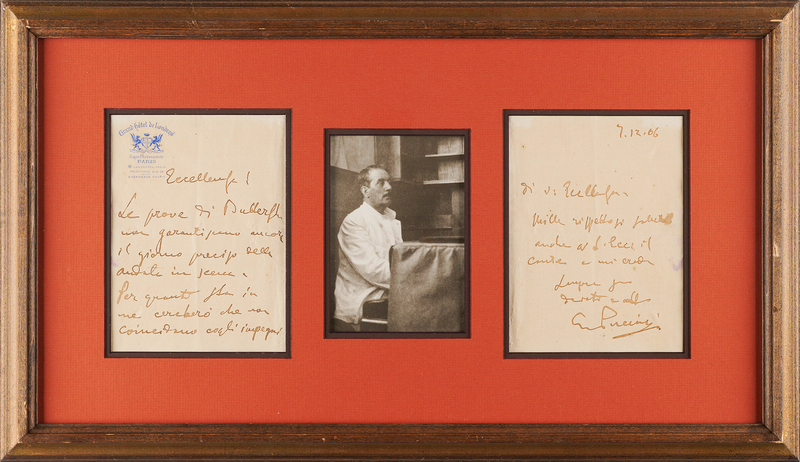 Grand Hôtel de Londres
PARIS
Eccellenza!
Le prove di Butterfly
non garantiscono ancora
il giorno preciso della
andata in scena.
Per quanto sta in
me cercherò che non
coincidano cogli impegni
7.12.06
di V. Eccellenza.
Mille rispettosi saluti
anche a S. Ecc. il
conte e mi creda
Sempre
devoto
G. Puccini